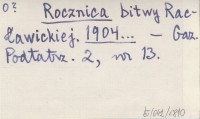 O?
Rocznica bitwy Rac-
ławickiej. 1904... — Gaz.
Podtatrz. 2, nr 13.